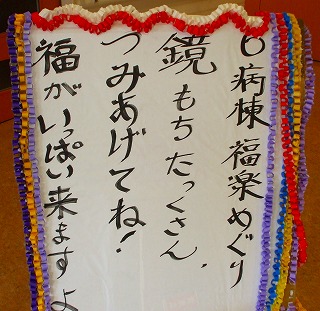 6病棟福楽めぐり
鏡もちたっくさん、
つみあげてね!
福がいっぱい来ますよ